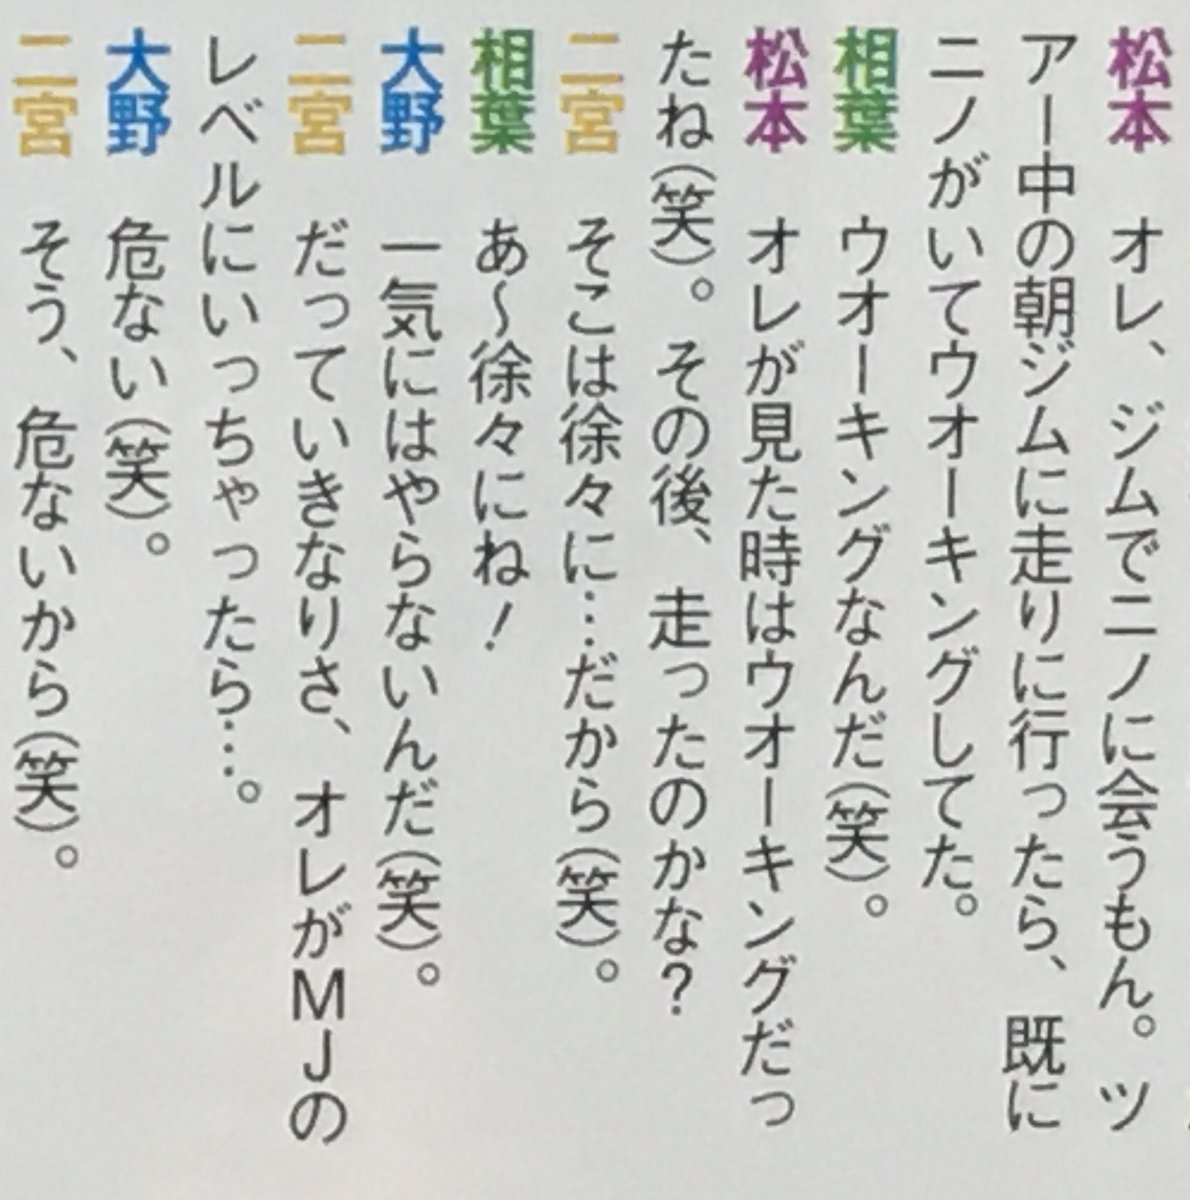 松本　オレ、ジムでニノに会うもん。ツ
アー中の朝ジムに走りに行ったら、既に
ニノがいてウオーキングしてた。
相葉　ウオーキングなんだ(笑)。
松本　オレが見た時はウオーキングだっ
たね(笑)。その後、走ったのかな？
二宮　そこは徐々に…だから(笑)。
相葉　あ～徐々にね！
大野　一気にはやらないんだ(笑)。
二宮　だっていきなりさ、オレがＭＪの
レベルにいっちゃったら…。
大野　危ない(笑)。
二宮　そう、危ないから(笑)。